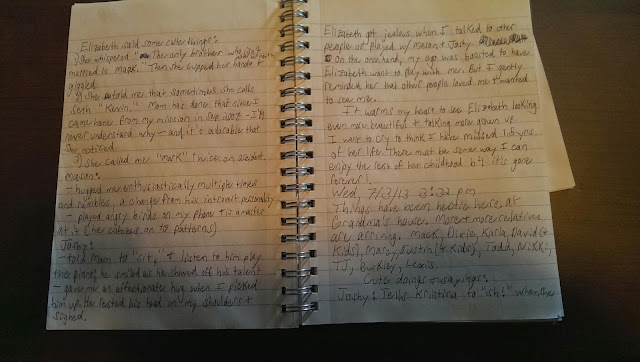 Elizabeth said some cute things:
1) She whispered "The only brother who isn't
married is Mark." Then she cupped her hands &
giggled.
2) She told me that sometimes she calls
Seth "Kevin." Mom has done that since I
came home from my mission in Sep 2007 - I'll
never understand why - and it's adorable that
she noticed.
3) She called me "Mark" twice on accident.
Mason:
- hugged me enthusiastically multiple times
and rambles, a change from his introvert personality
- played angry birds on my phone & is a master
at it (he catches on to patterns)
Joshy:
- told Mom to "sit," & listen to him play
the piano; he smiled as he showed off his talent
- gave me an affectionate hug when I picked
him up. He rested his head on my shoulders &
sighed.
Elizabeth got jealous when I talked to other
people or played w/ Mason & Joshy.
On the one hand, my ego was boosted to have
Elizabeth want to play with me. But I gently
reminded her that other people loved me & wanted
to see me.
It warms my heart to see Elizabeth looking
even more beautiful & talking more grown up.
I want to cry to think I have missed 1.5 yrs
of her life. There must be some way I can
enjoy the rest of her childhood b4 it's gone
forever!
Wed, 7/3/13 3:22 pm
Things have been hectic here, at
Grandma's house. More & more relatives
are arriving: Mack, Dixie, Karla, David (&
kids), Mary, Justin (& kids), Todd, Nikki,
TJ, Burkley, Lexis.
Cute doings & sayings:
Joshy: Tells Kristina to "sh!" when she